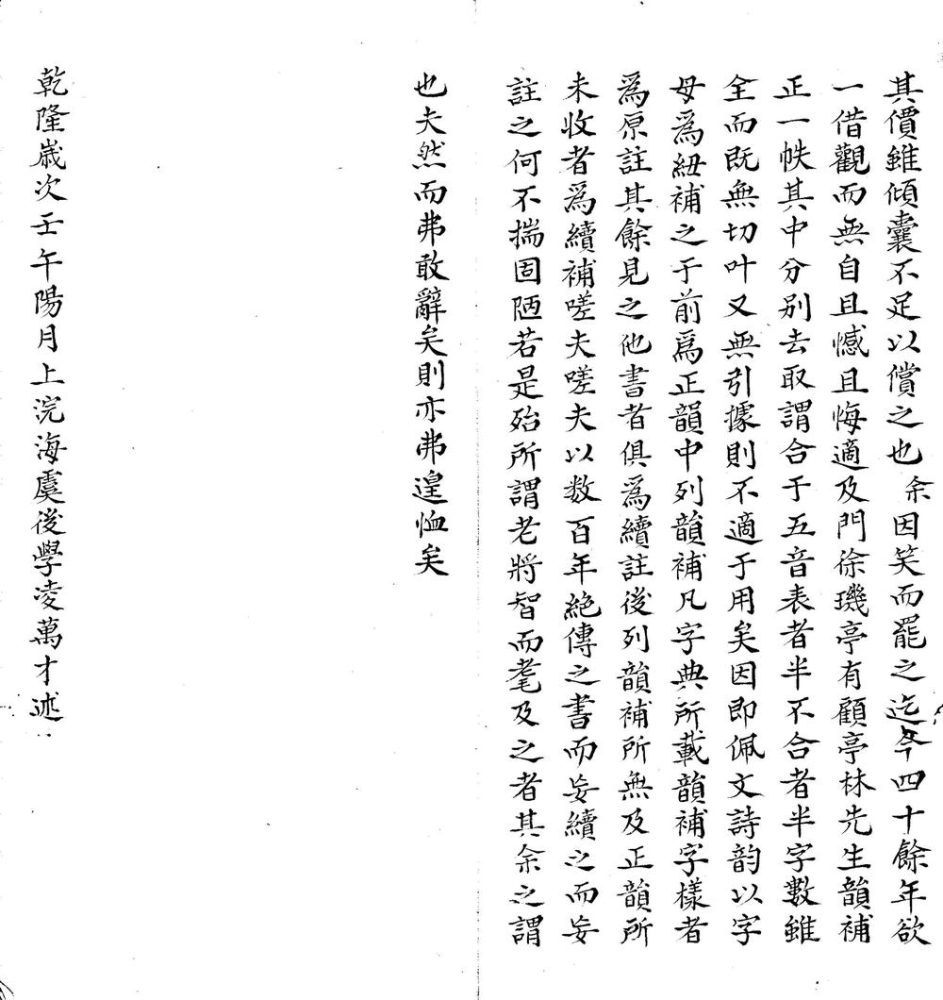 其價雖傾囊不足以償之也余因笑而罷之迄今四十餘年欲
一借觀而無自且憾且悔適及門徐璣亭有顧亭林先生韻補
正一帙其中分别去取謂合于五音表者半不合者半字數雖
全而既無切叶又無引據則不適于用矣因即佩文詩韵以字
母爲紐補之于前爲正韻中列韻補凡字典所載韻補字樣者
爲原註其餘見之他書者俱爲續註後列韻補所無及正韻所
未收者爲續補嗟夫嗟夫以数百年絶傳之書而妄續之而妄
註之何不揣固陋若是殆所謂老將智而耄及之者其余之謂
也夫然而弗敢辭矣則亦弗遑恤矣
乾隆歳次壬午陽月上浣海虞後學凌萬才述